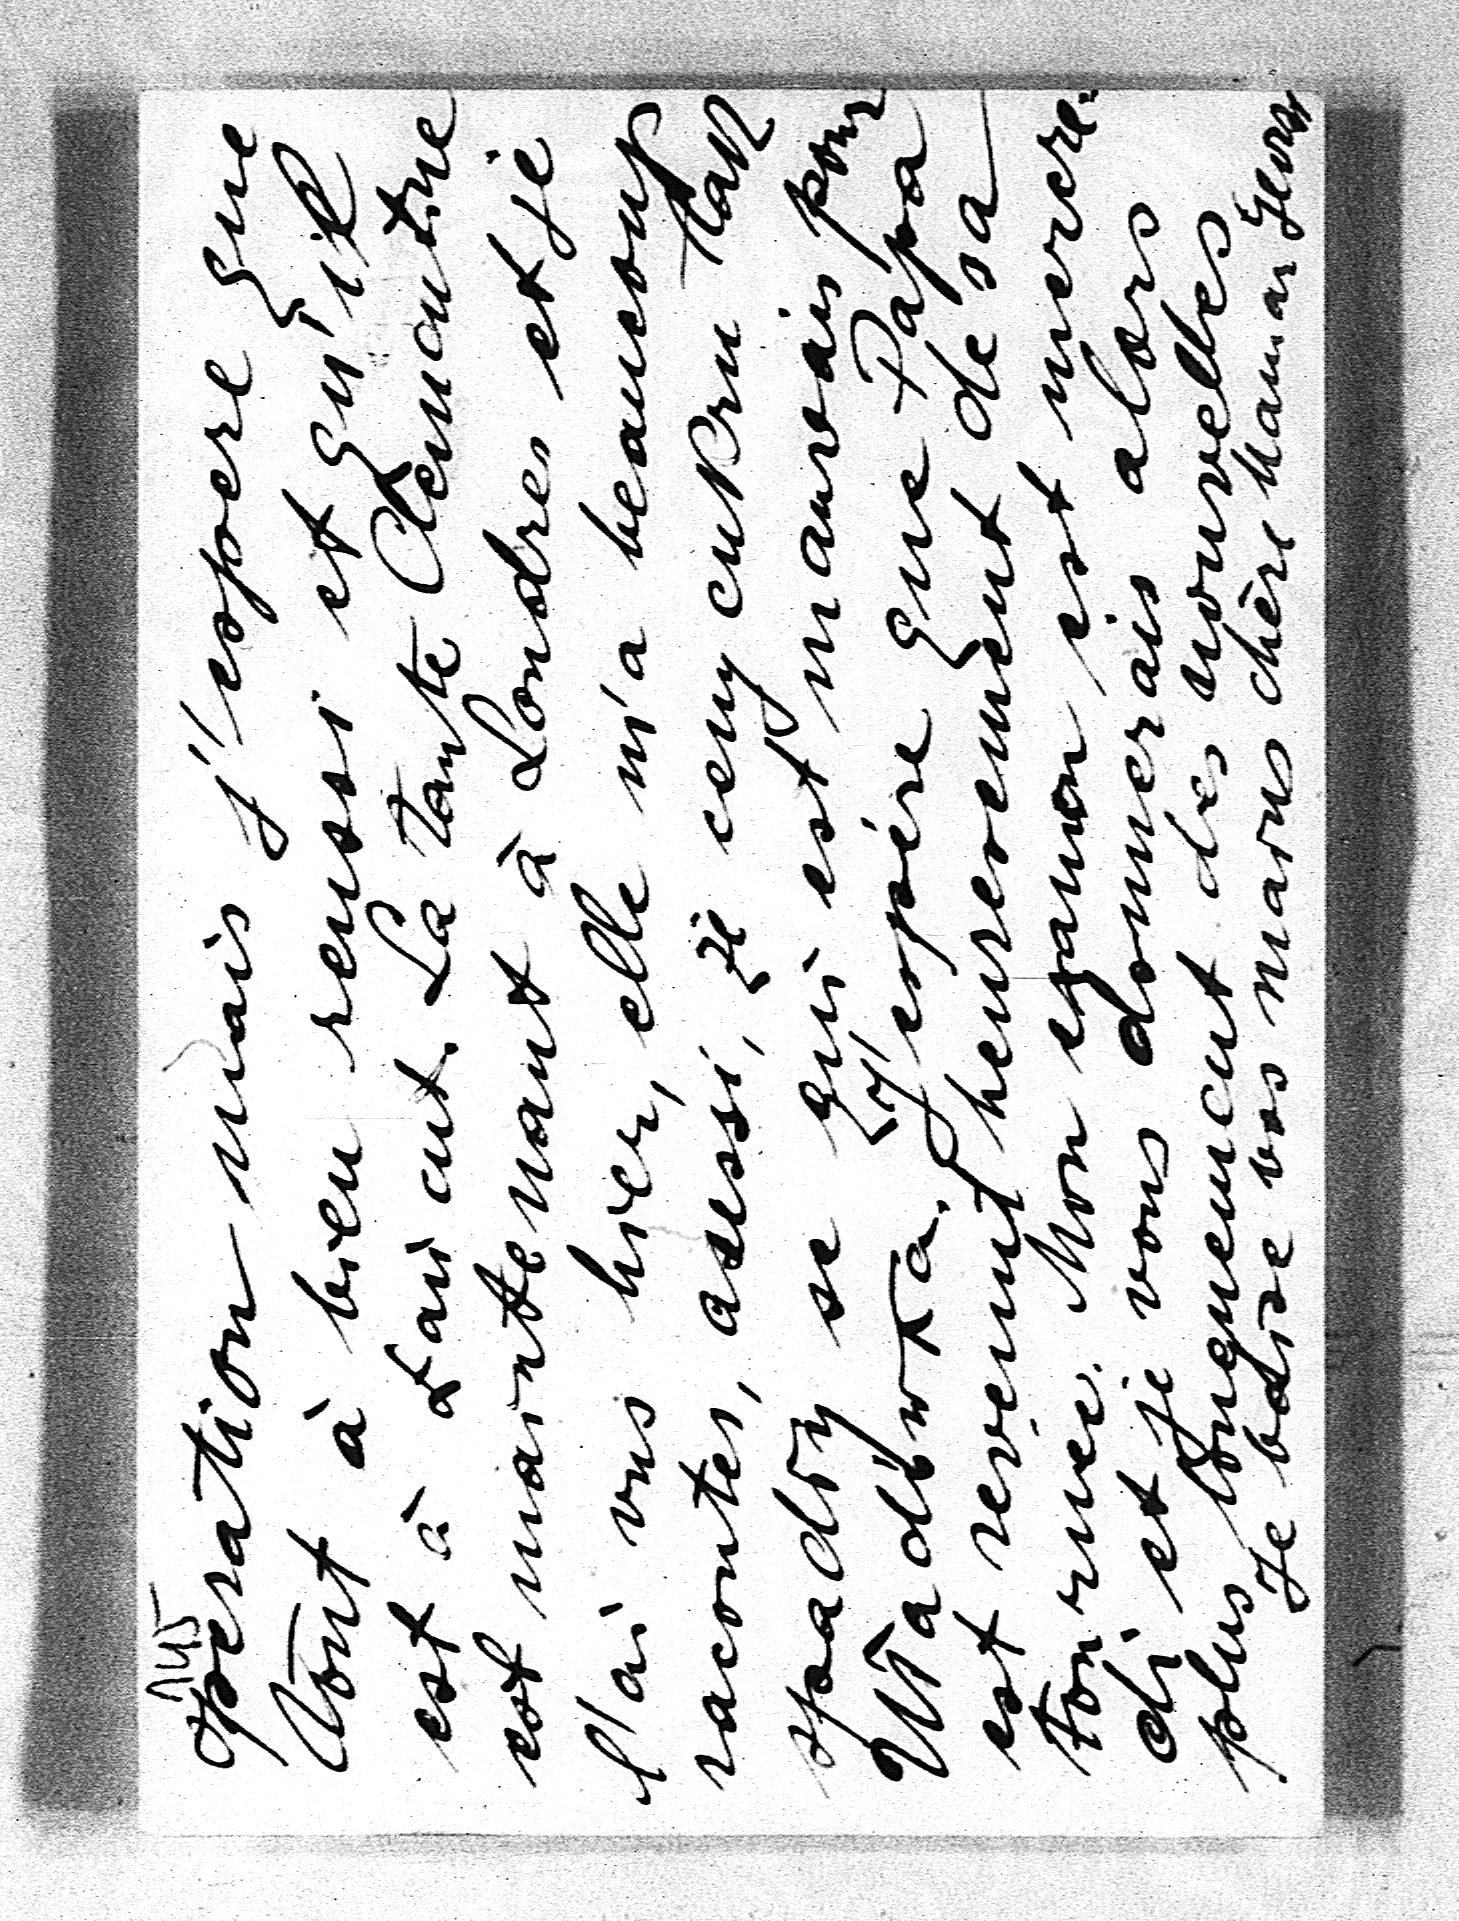 1145
operation mais j'espere que
tout à bien reussi et qu'il
est à Lancut. La tante Clemantine
est maintenant à Londres et je
l'ai vus hier, elle m'a beaucoup
racontes, assssi, że ceny cukru tak
spadły se qui est mauvais pour
Wladówka. J'espére que Papa
est revenut heureoement de sa
tournee. Mon egamon est mercre-
di et je vous donnerais alors
plus longuement des nouvelles
Je baise vos mains chère Maman